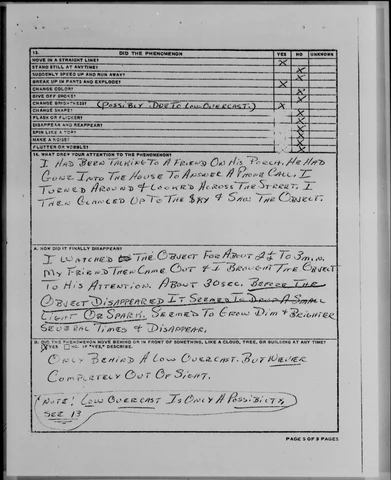 13. DID THE PHENOMENON YES NO UNKNOWN
MOVE IN A STRAIGHT LINE? X
STAND STILL AT ANYTIME? X
SUDDENLY SPEED UP AND RUN AWAY? X
BREAK UP IN PARTS AND EXPLODE? X
CHANGE COLOR? X
GIVE OFF SMOKE? X
CHANGE BRIGHTNESS? (POSSIBLY DUE TO LOW OVERCAST.) X
CHANGE SHAPE? X
FLASH OR FLICKER? X
DISAPPEAR AND REAPPEAR? X
SPIN LIKE A TOP? X
MAKE A NOISE? X
FLUTTER OR WOBBLE? X
14. WHAT DREW YOUR ATTENTION TO THE PHENOMENON?
I HAD BEEN TALKING TO A FRIEND ON HIS PORCH. HE HAD
GONE INTO THE HOUSE TO ANSWER A PHONE CALL. I
TURNED AROUND & LOOKED ACROSS THE STREET. I
THEN GLANCED UP TO THE SKY & SAW THE OBJECT.
A. HOW DID IT FINALLY DISAPPEAR?
I WATCHED THE OBJECT FOR ABOUT 2½ TO 3 MIN.
MY FRIEND THEN CAME OUT & I BROUGHT THE OBJECT
TO HIS ATTENTION. ABOUT 30 SEC. BEFORE THE
OBJECT DISAPPEARED IT SEEMED TO DROP A SMALL
LIGHT OR SPARK. SEEMED TO GROW DIM & BRIGHTER
SEVERAL TIMES & DISAPPEAR.
B. DID THE PHENOMENON MOVE BEHIND OR IN FRONT OF SOMETHING, LIKE A CLOUD, TREE, OR BUILDING AT ANY TIME?
YES NO. IF "YES," DESCRIBE.
ONLY BEHIND A LOW OVERCAST. BUT NEVER
COMPLETELY OUT OF SIGHT.
NOTE! LOW OVERCAST IS ONLY A POSSIBILTY,
SEE 13
PAGE 5 OF 9 PAGES